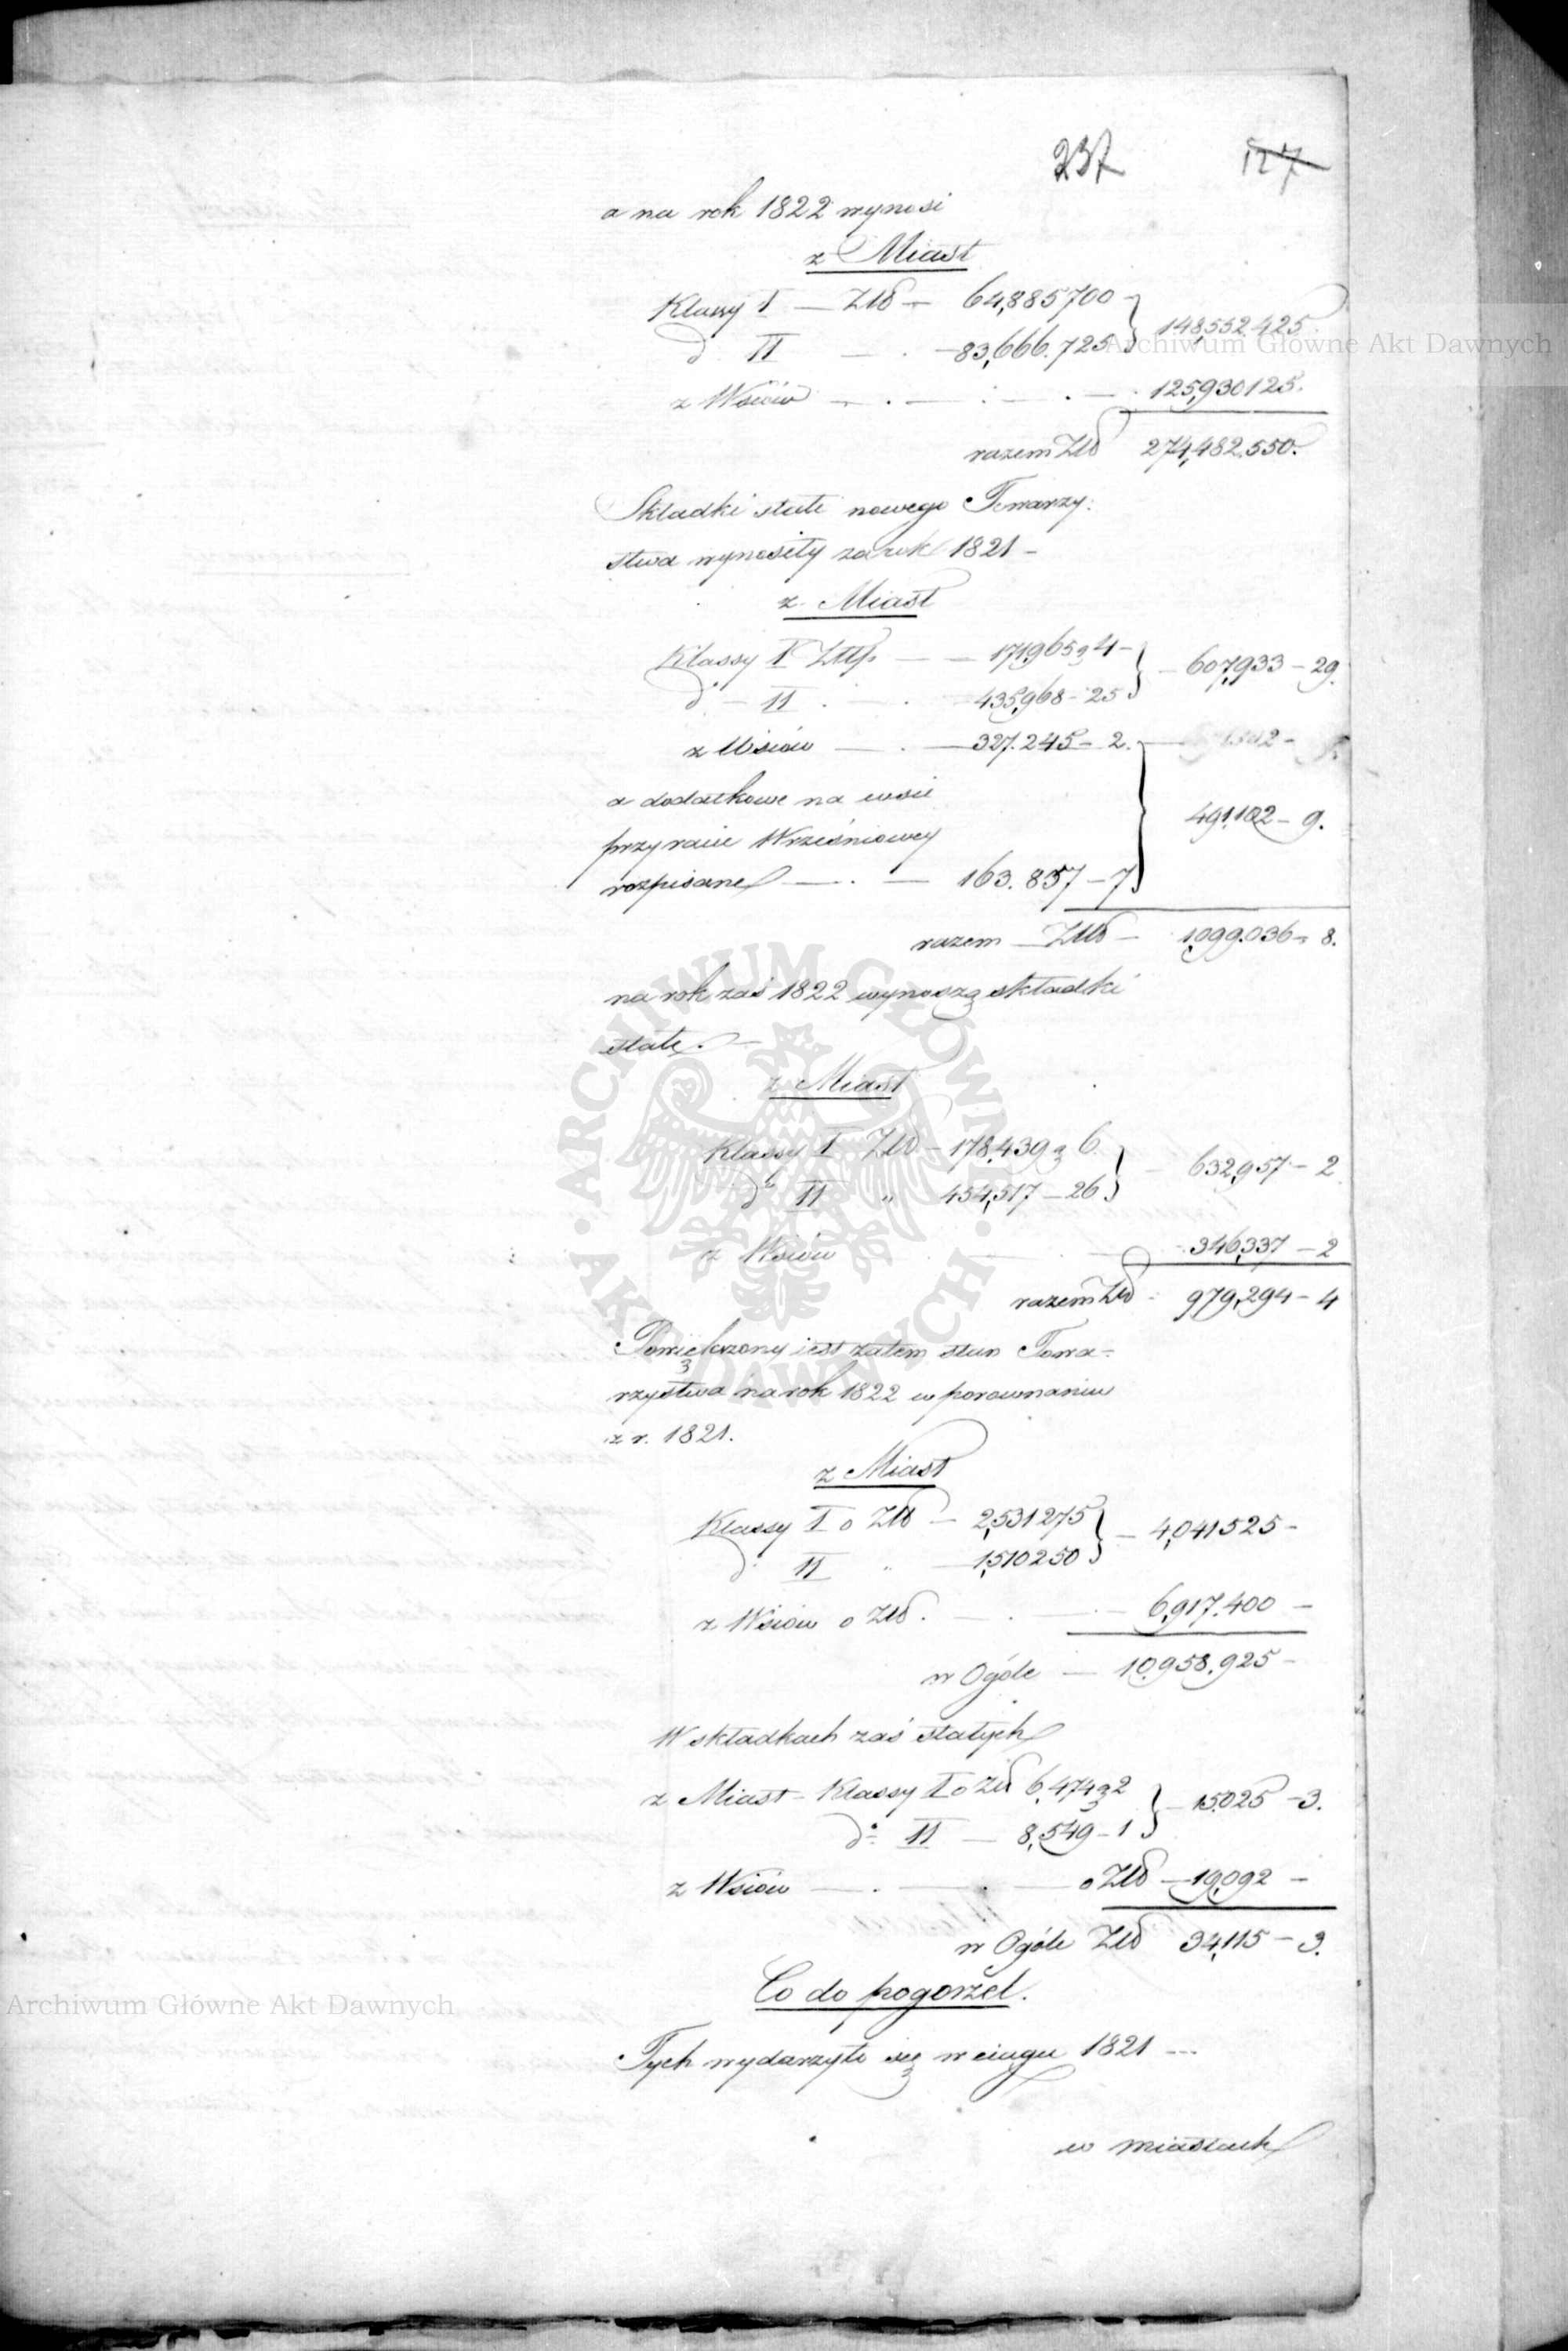 237 127
a na rok 1822 wynosi
z Miast
Klassy I — Złł — 64,885700 -
do II — . — 83,666.725 } 148,552.425.
z Wsiów — . — . — . — 125,930125.
razem Złł 274,482.550.
Składki stałe nowego Towarzy:
stwa wynosiły za rok 1821 -
z Miast
Klassy I Złłp — — 171,965 g 4 -
do — II . — . 435,968 - 25 } - 607,933 - 29.
z Wsiów — . — 327.245 - 2.
a dodatkowe na wsie
przy racie Wrześniowey
rozpisane — . — 163.857 - 7 } 491.102 - 9.
razem — Złł — 1,099.036 - 8.
na rok zaś 1822 wynoszą składki
stałe. —
z Miast
Klassy I Złł - 178,439 g 6.
do II " 454,517 - 26 } - 632,957 - 2
z Wsiów — — 346,337 - 2
razem Złł - 979,294 - 4
Powiększony iest zatem stan Towa-
rzystwa na rok 1822 w porownaniu
z r. 1821.
z Miast
Klassy I o Złł — 2,531275
do II " — 1,510250 } - 4,041525 -
z Wsiów o Złł . — . — 6,917.400 —
w Ogóle — 10,958,925 -
W składkach zaś stałych
z Miast - Klassy I o Złł 6,474 g 2
do II — 8,549 - 1 } - 15025 - 3.
z Wsiów — . — . — o Złł — 19,092 —
w Ogóle Złł 34,115 - 3.
Co do pogorzel.
Tych wydarzyło się w ciągu 1821 ---
w miastach
Archiwum Główne Akt Dawnych
Archiwum Główne Akt Dawnych
ARCHIWUM GŁÓWNE · AKT DAWNYCH ·